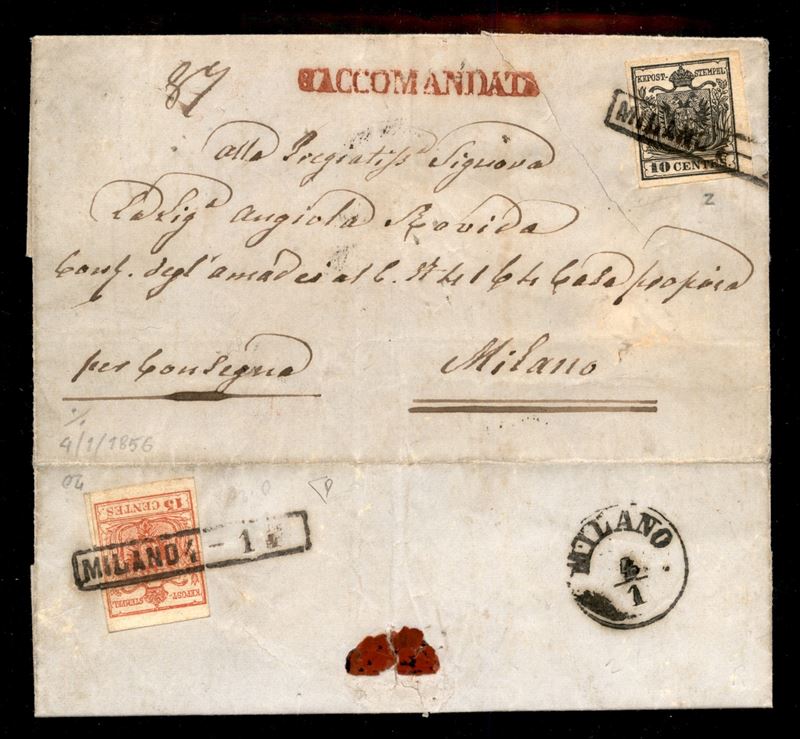 87
RACCOMANDATA
KKPOST-STEMPEL
MILANO
10 CENTES
Z
Alla Pregiatiss Signora
La Sig.a Angiola Rovida
degl'amadei al C. N 4164 Casa propria
per Consegna
Milano
4/1/1856
15 CENTES.
MILANO 4 - 1
KKPOST-STEMPEL
MILANO
4/1